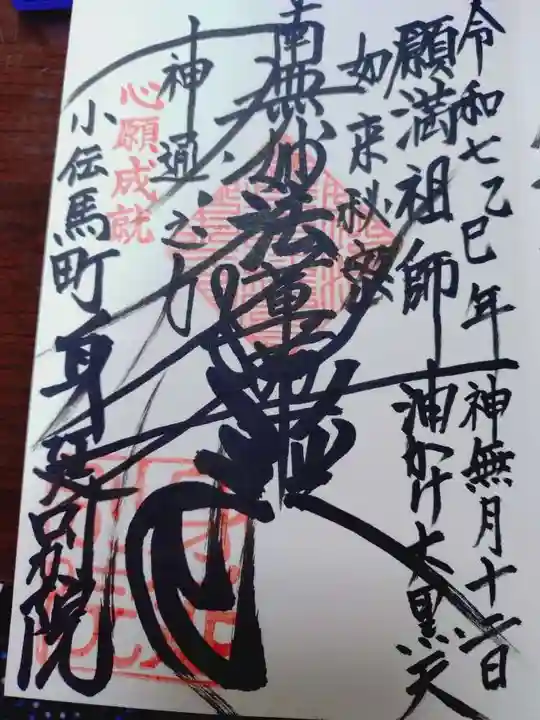 令和七乙巳年 神無月十二日
願満祖師 油かけ大黒天
如来秘密
南無妙法蓮華経
神通之力
心願成就
小伝馬町身延別院